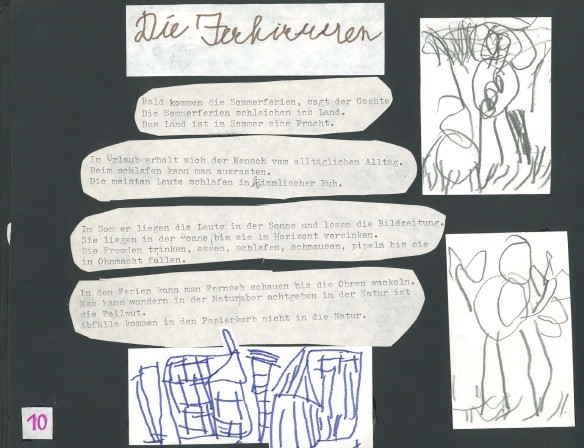 Die
Bald kommen die Sommerferien, sagt der Goehte
Die Sommerferien schleichen ins Land.
Das Land ist im Sommer eine Pracht.
Im Urlaub erholt sich der Mensch vom alltäglichen Alltag.
Beim schlafen kann man ausrasten.
Die meisten Leute schlafen in himmlischer Ruh.
Im Sommer liegen die Leute in der Sonne und lesen die Bildzeitung.
Sie liegen in der Sonne bis sie im Horizont versinken.
Die Fremden trinken, essen, schlafen, schmausen, pipeln bis sie
in Ohnmacht fallen.
In den Ferien kann man Fernseh schauen bis die Ohren wackeln.
Man kann wandern in der Naturaber achtgeben in der Natur ist
die Tollwut.
Abfälle kommen in den Papierkorb nicht in die Natur.
10